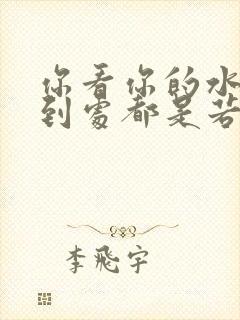 你看你的水
到處都是若
李飛宇